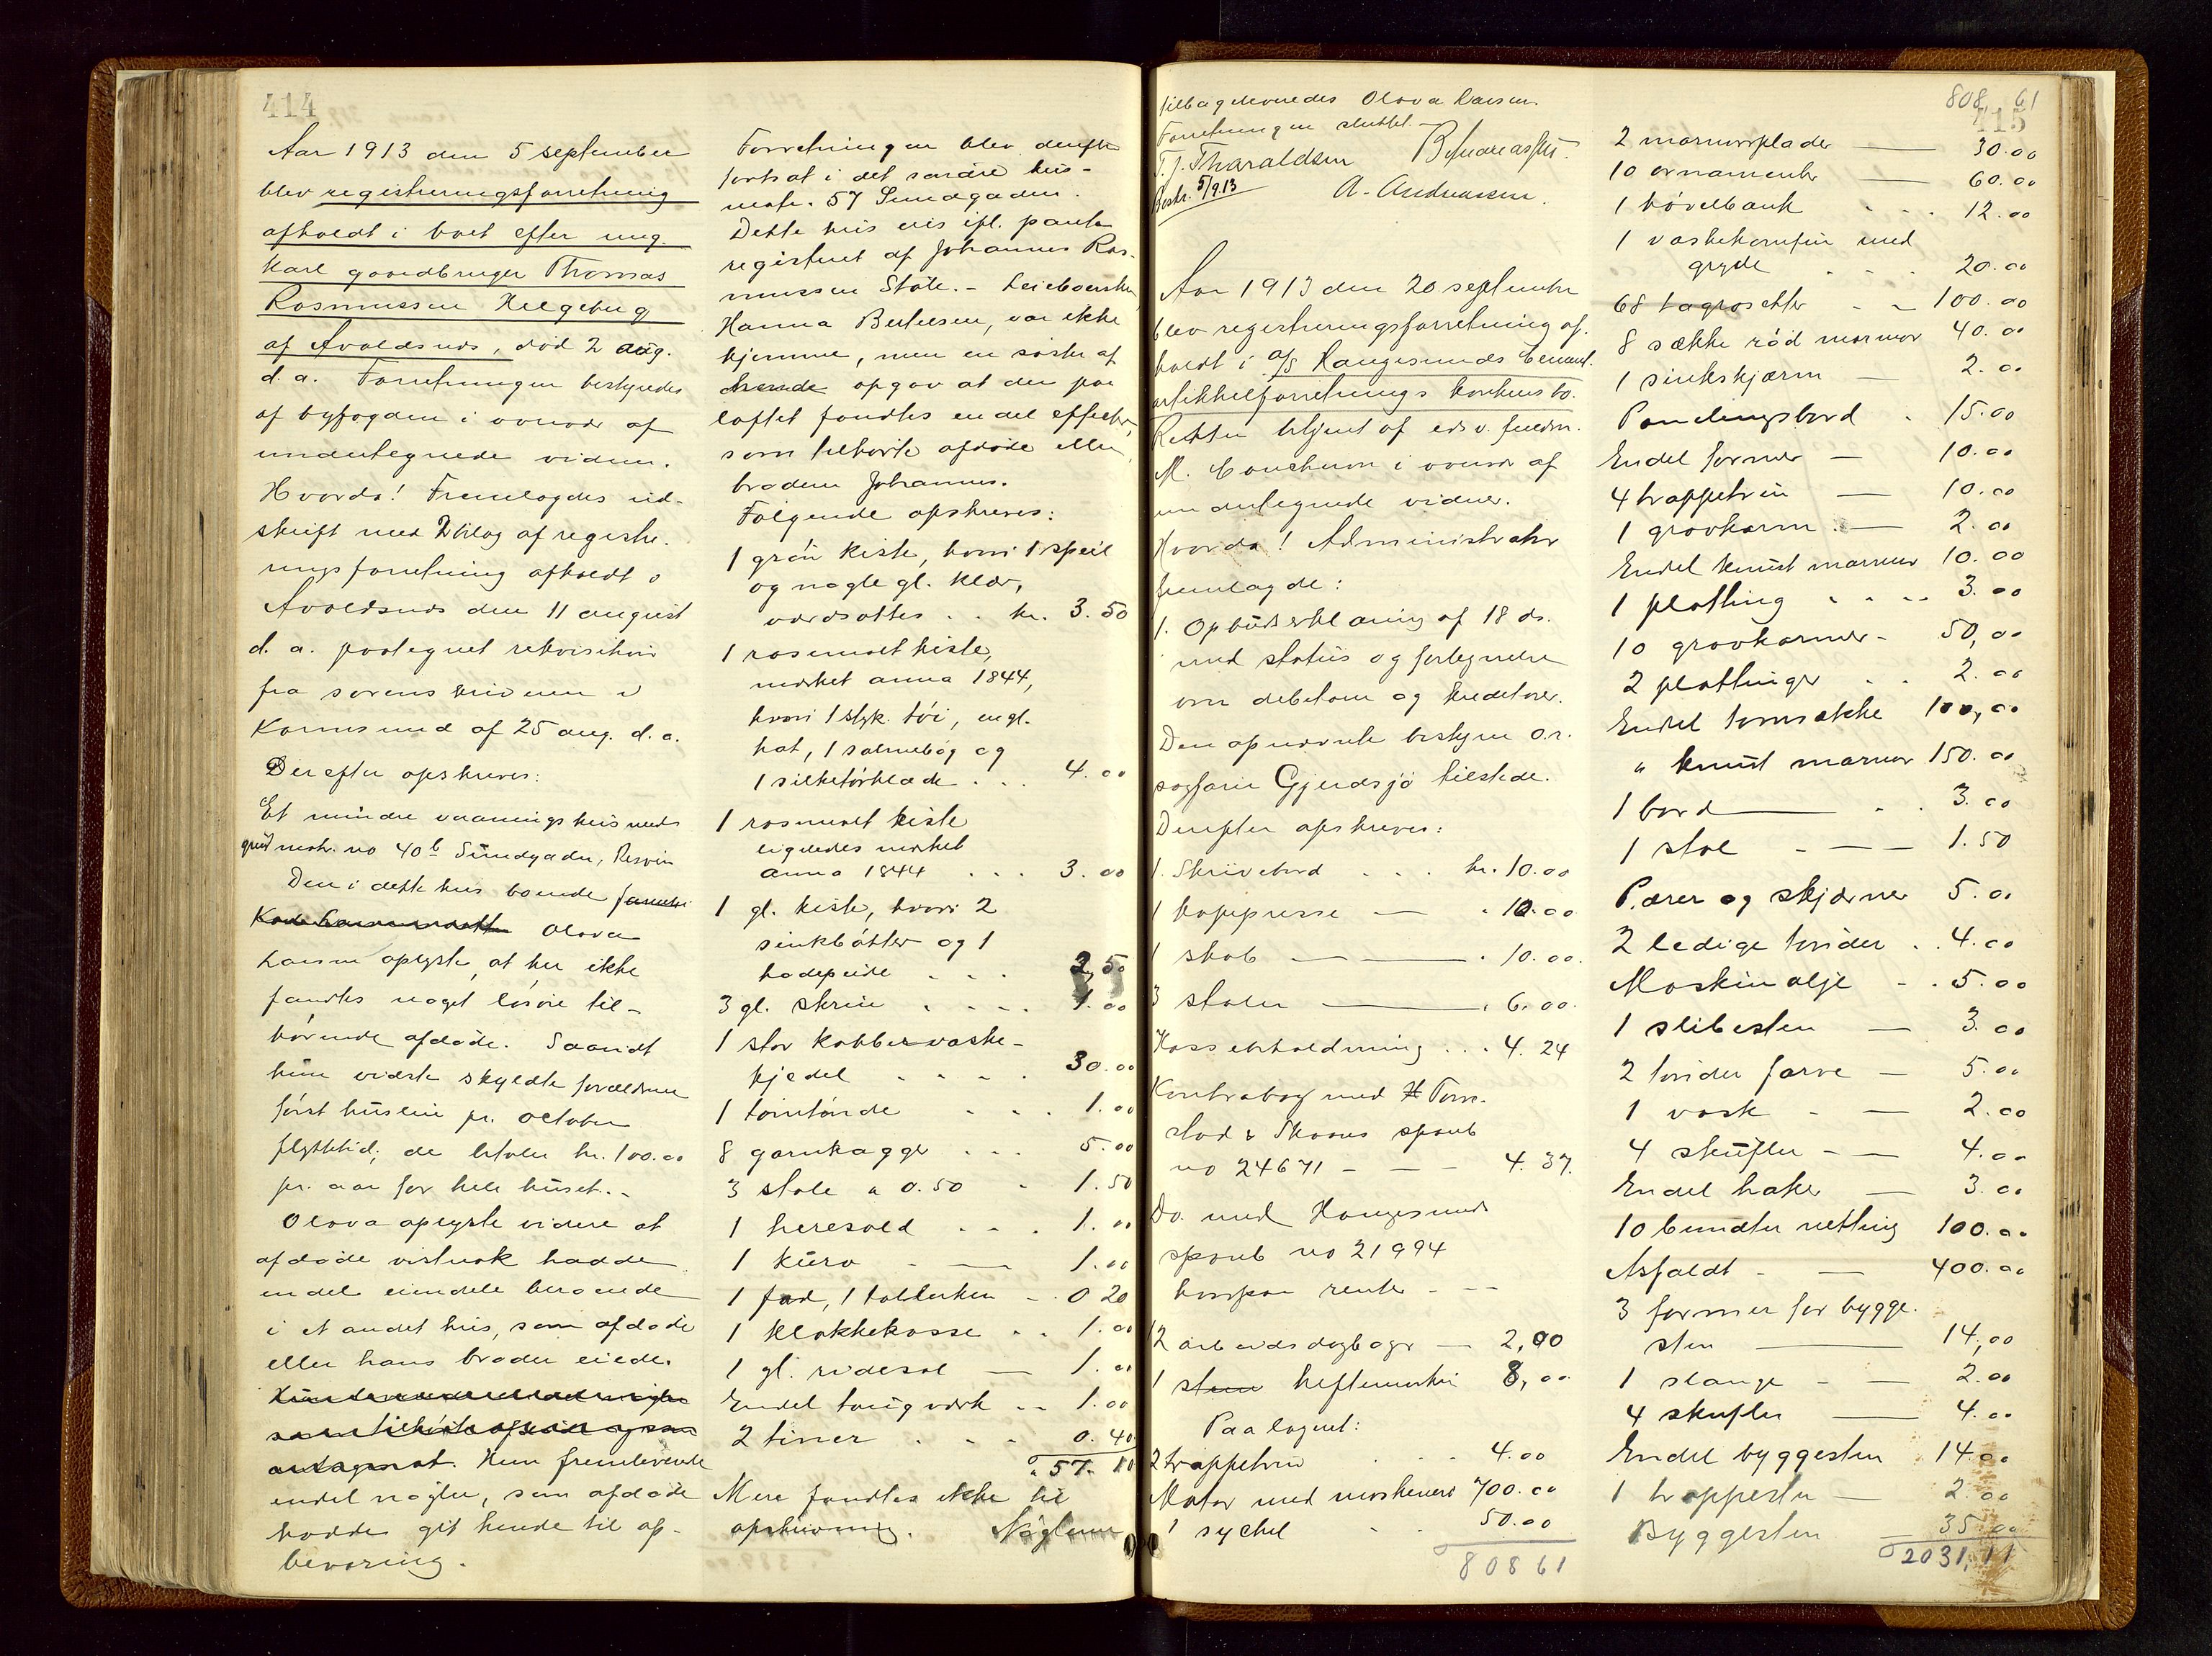 414
Aar 1913 den 5 september
blev registreringsforretning
afholdt i boet efter ung-
karl gaardbruger Thomas
Rasmussen Helgebug
af Avaldsnes, död 2 aug.
d. a. Forretningen bestyredes
af byfogden i overvær af
undertegnede vidner.
Hvorda! Fremlagdes ud-
skrift med 2 bilag af registre-
ringsforretning afholdt i
Avaldsnes den 11 august
d. a. paategnet rekvisition
fra sorenskriveren i
Karmsund af 25 aug. d. a.
Derefter opskreves:
Et mindre vaaningshus med
grund matr. no 40b Sundgaden, Risøen
Den i dette hus boende
Olava
Larsen oplyste, at her ikke
fandtes noget lösöre til-
hörende afdöde. Saavidt
hun vidste skyldte forældrene
först husleie pr. october
flyttetid; de betaler kr. 100.00
pr. aar for hele huset.-
Olava oplyste videre at
afdöde vistnok hadde
endel eiendele beroende
i et andet hus, som afdöde
eller hans broder eiede.
Hun fremleverte
endel nögler, som afdöde
hadde git hende til op-
bevaring.
Forretningen blev derefter
fortsat i det søndre hus-
matr. 57 Sundgaden.
Dette hus eies ifl. pante-
registeret af Johannes Ras-
mussen Stöle. - Leieboersken
Hanna Bertelsen, var ikke
hjemme, men en söster af
hende opgav at der paa
loftet fandtes endel effecter,
som tilhörte afdöde eller
brodern Johannes.
Fölgende opskreves:
1 grön kiste, hvori 1 speil
og nogle gl. klær,
værdsattes . . kr. 3.50
1 rosemalt kiste,
merket anna 1844,
hvori 1 styk. töi, en gl.
hat, 1 salmebog og
1 silketörklæde . . . 4.00
1 rosemalt kiste
ligeledes merket
anna 1844 . . . 3.00
1 gl. kiste, hvori 2
sinkbötter og 1
hodepude . . . 2,50
3 gl. skrin . . . . 1.00
1 stor kobber vaske-
kjedel . . . . 30.00
1 torntönde . . . 1.00
8 garnkagger . . . 5.00
3 stole a 0.50 - 1.50
1 heresold . . . 1.00
1 kurv - — 1.00
1 fad, 1 tallerken - . 0 20
1 klokkekasse . . 1.00
1 gl. ridesal — 1.00
Endel taugverk . . 1.00
2 tiner . . . 0.40
57. 10
Mere fandtes ikke til
opskrivning. Nöglerne
tilbageleveredes Olava Larsen.
Forretningen sluttet.-
T. J. Tharaldsen B. Andreassen.
Beskr. 5/9.13
A. Andreassen.
Aar 1913 den 20 september
blev registreringsforretning af-
holdt i A/S Haugesunds Cement-
artikkelforretnings konkursbo.
Retten betjent af edsv. fuldm.
M. Coucheron i overvær af
undertegnede vidner.
Hvorda! Administrator
fremlagde:
1. Opbudserklæring af 18 ds.
med status og fortegnelse
over debitorer og kreditorer.
Den opnævnte bestyrer o.r.
sagförer Gjerdsjö tilstede.
Derefter opskreves:
1 Skrivebord . . . kr. 10.00
1 kopipresse — . 10.00
1 skab — — . 10.00.
3 stoler — . 6.00.
Kassebeholdning . . . 4. 24
Kontrabog med Torn-
stad & Skaares spareb
no 24671 - - - 4. 37.
Do. med Haugesunds
spareb no 21994
hvorpaa renter - --
12 arbeidsdagböger — 2,00
1 heftemaskin 8,00
Paa lageret:
2 trappetrin . . 4.00
Motor med maskineri 700.00
1 sychel . . 50.00
808 61
808, 61
415
2 marmorplader — 30.00
10 ornamenter — 60.00
1 hövelbænk . . . 12.00
1 vaskekomfur med
gryde . . . 20.00
68 tagrosetter . - 100.00
8 sække röd marmor 40.00
1 sinkskjærm — 2.00
Paandlingsbord . 15.00
Endel former — 10.00
4 trappetrin — 10.00
1 gravkarm . — 2.00
Endel kunst marmor 10.00
1 platting . . -- 3.00
10 gravkarmer - 50,00
2 plattinger . . 2.00
Endel tomsække 100,00
" kunst marmor 150.00
1 bord — . . 3.00
1 stol - — — 1.50
Pærer og skjærmer 5.00
2 ledige tönder . . 4.00
Maskinolje - . 5.00
1 slibesten — 3.00
2 tönder farve — 5.00
1 vask - — 2.00
4 skufler - — 4.00
Endel haker — 3.00
10 bundter netting 100.00
Asfaldt - — 400.00
3 former for bygge-
sten — 14,00
1 slange - — 2.00
4 skufler — 4.00
Endel byggesten 14.00
1 trappesten — 2.00
Byggesten — 35.00
2031, 11